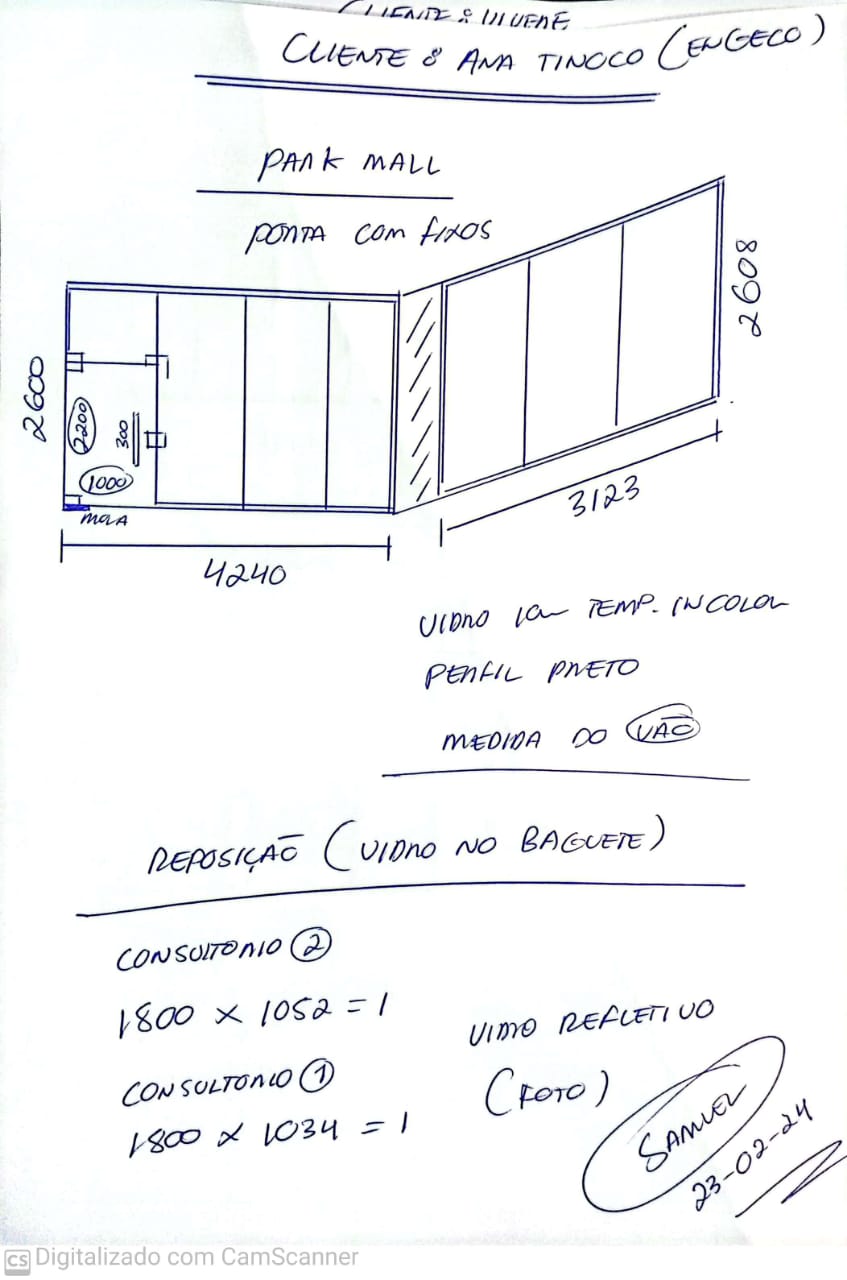 CLIENTE : 
CLIENTE : ANA TINOCO (ENGECO)
PARK MALL
PORTA COM FIXOS
2600
2200
300
1000
MOLA
4240
2608
3123
VIDRO TEMP. INCOLOR
PERFIL PRETO
MEDIDA DO VÃO
REPOSIÇÃO (VIDRO NO BAGUETE)
CONSULTORIO 2
1800 x 1052 = 1
CONSULTORIO 1
1800 x 1034 = 1
VIDRO REFLETIVO
(FOTO)
SAMUEL
23-02-24
CS Digitalizado com CamScanner